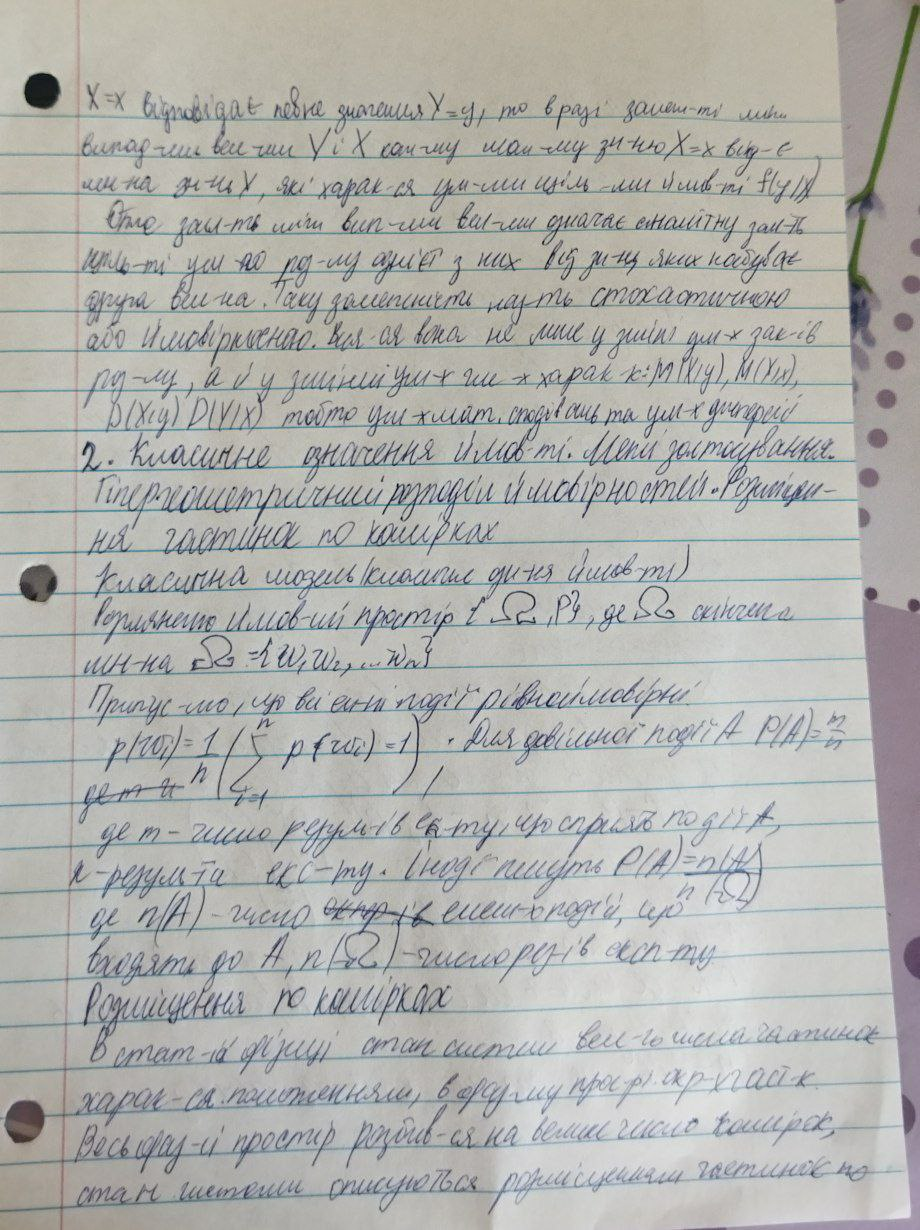 X=x відповідає певне значення Y=y, то в разі залеж-ті між
випад-ми вел-ми Y і X кож-му мож-му зн-ню X=x від-є
мн-на зн-нь Y, які харак-ся ум-ми щіль-ми ймов-ті f(y|x)
Отже зал-ть між вип-ми вел-ми означає зал-ть
щіль-ті ум-го роз-лу однієї з них від зн-нь яких набуває
друга вел-на. Таку залежність наз-ть стохастичною
або ймовірнісною. вона не лише у зміні ум-х зак-ів
роз-лу, а й у зміній ум-х чис-х харак-к: M(X|y), M(Y|x),
D(X|y) D(Y|X) тобто ум-х мат. сподівань та ум-х дисперсій
2. Класичне означення ймов-ті. Межі застосування.
Гіпергеометричний розподіл ймовірностей. Розміще-
ня частинок по комірках
Класична модель (класичне зн-ня ймов-ті)
Розглянемо ймов-ий простір { Ω, P}, де Ω скінчена
мн-на Ω={w, w₂, ...wn}
Припус-мо, що всі події рівноймовірні.
p(wi)=1/n (∑ i=1 n p(wi)=1). Для довільної події A P(A)=m/n
де m - число резул-ів ек-ту, що сприять події A,
n-резул-та екс-ту. Іноді пишуть P(A)=n(A)/n(Ω)
де n(A) - число елем-х подій, що
входять до A, n(Ω) - число рез-ів експ-ту
Розміщення по комірках
В стат-ій фізиці стан системи вел-го числа частинок
харак-ся положенням, в фаз-му прос-рі окр-х част-к.
Весь фаз-й простір розбив-ся на велике число комірок,
стан системи описується розміщенням частинок по